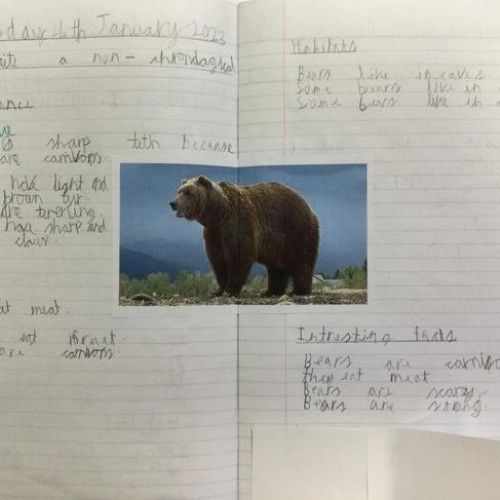 day 4th January 2023
a non-chronological
ance
sharp teth because
are carnivors.
hav light and
brown fur.
are towering.
has sharp and
claws.
at meat.
eat
are carnivors.
Habitats
Bears live in caves.
Some bears live in
Some bears live in
Intresting facts
Bears are carnivo
they eat meat
Bears are scary.
Bears are strong.